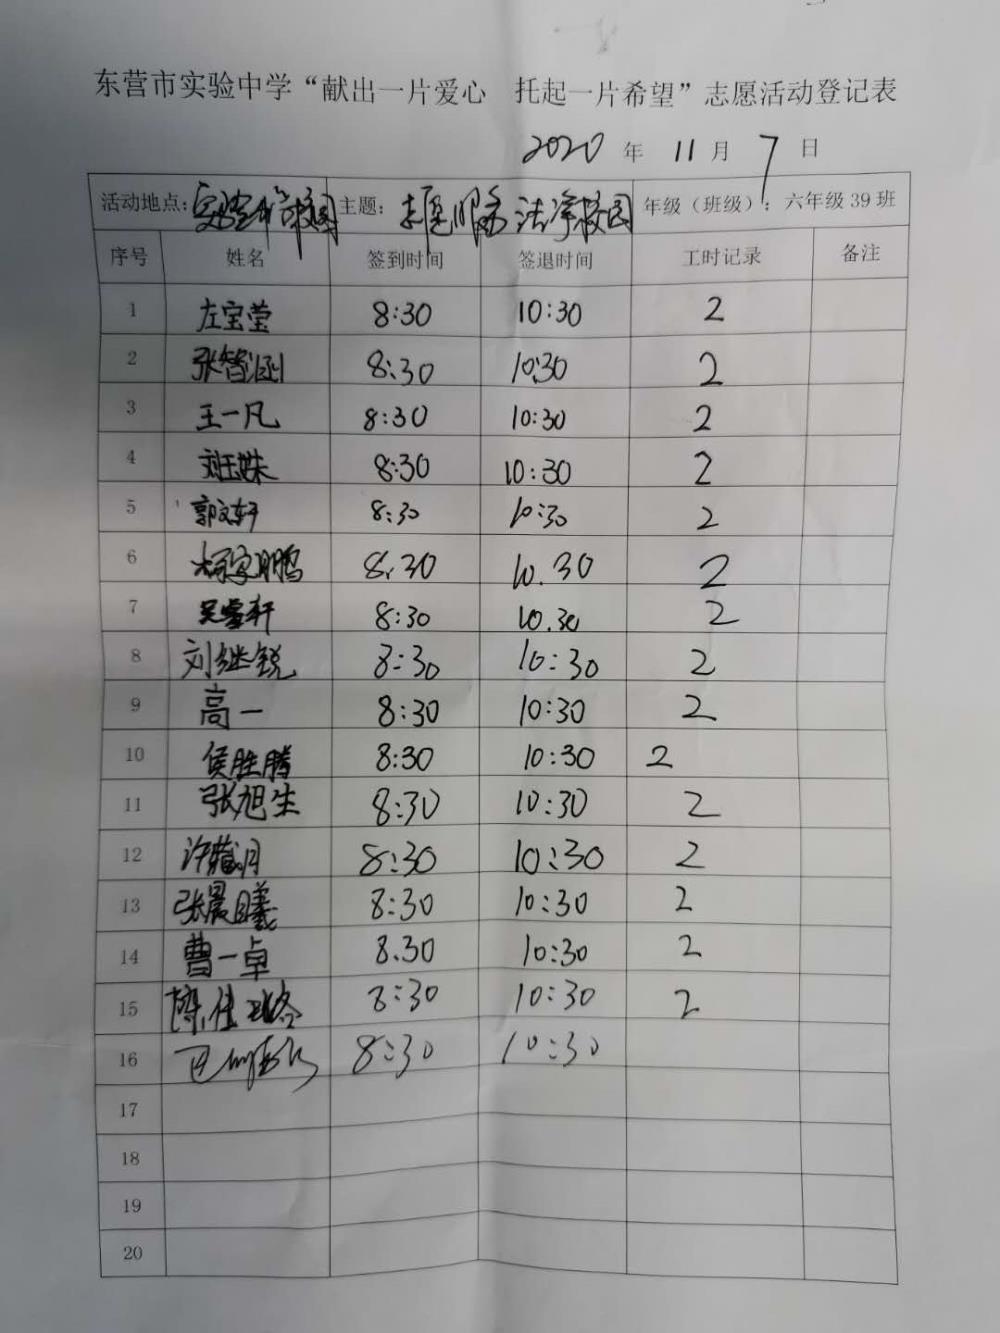 东营市实验中学“献出一片爱心 托起一片希望”志愿活动登记表
2020 年 11 月 7 日
活动地点: 实验中学校园 主题: 志愿服务 洁净校园 年级（班级）: 六年级 39 班
序号 姓名 签到时间 签退时间 工时记录 备注
1 左宝莹 8:30 10:30 2
2 张智涵 8:30 10:30 2
3 王一凡 8:30 10:30 2
4 刘玉姝 8:30 10:30 2
5 郭文轩 8:30 10:30 2
6 8:30 10.30 2
7 吴睿轩 8:30 10.30 2
8 刘继锐 8:30 10:30 2
9 高一 8:30 10:30 2
10 侯胜腾 8:30 10:30 2
11 张旭生 8:30 10:30 2
12 8:30 10:30 2
13 张晨曦 8:30 10:30 2
14 曹一卓 8.30 10:30 2
15 8:30 10:30 2
16 8:30 10:30
17
18
19
20